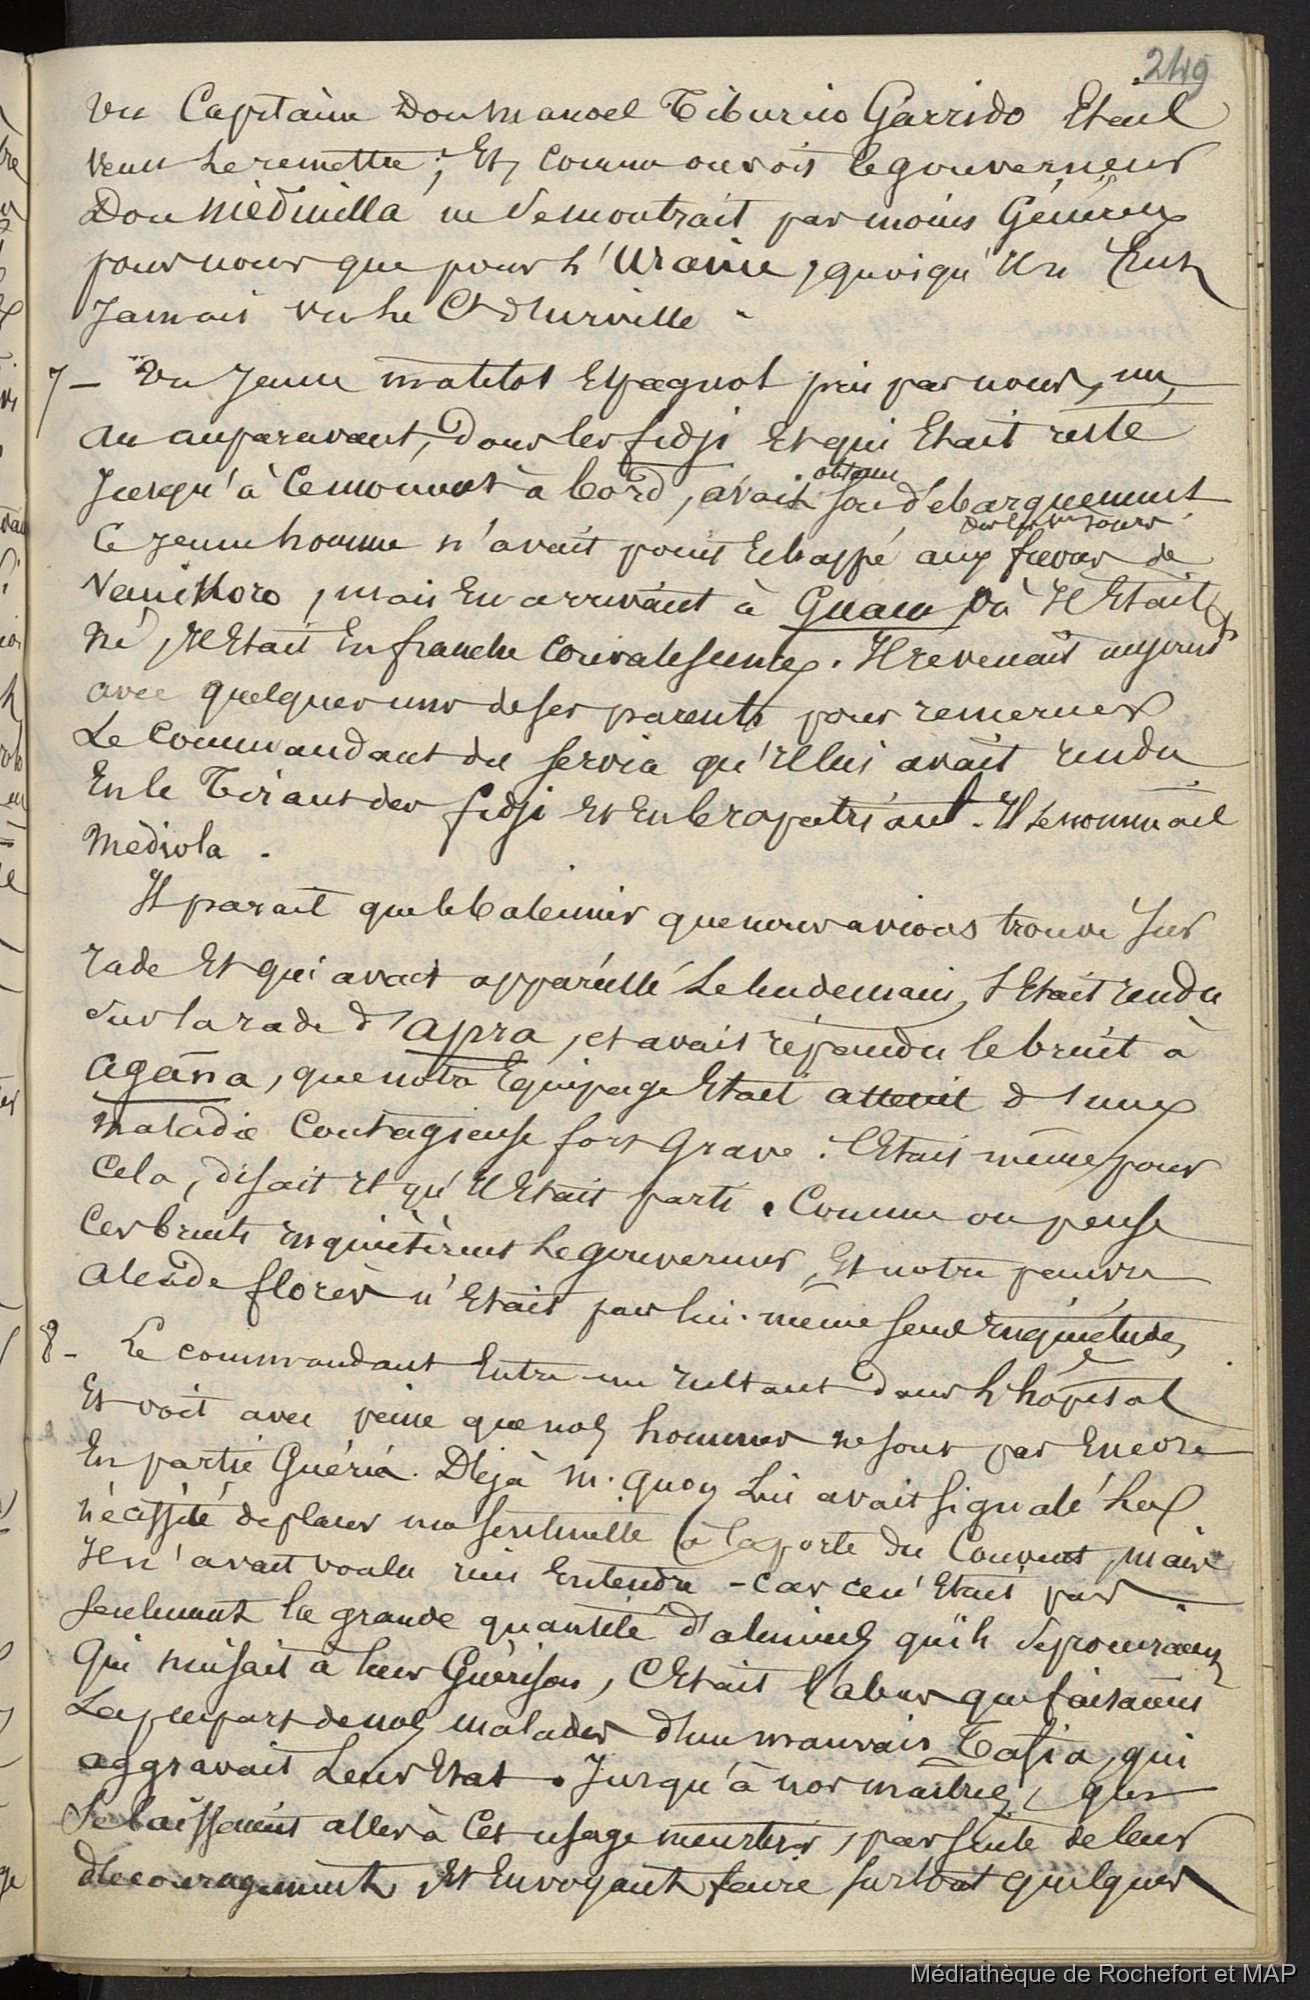 249
Un Capitaine Don Manoel Tiburcio Garrido Etait
venu Le remettre ; Et, comme on voit le gouverneur
Don Médinilla ne se montrait pas moins Généreux
pour nous que pour L'Uranie, quoiqu'Il n'Eut
Jamais vu Le Ct d'Urville .
7 — Un Jeune matelot Espagnol pris par nous, un
an auparavant, dans les fidji Et qui Etait resté
Jusqu'à Ce moment à bord, avait obtenu son débarquement
Ce Jeune homme n'avait point Echappé aux fievres de
Vanikoro, mais En arrivant à Guam où Il Etait
Né, Il Etait En franche convalescence. Il revenait
avec quelques uns de ses parents pour remercier
Le Commandant du service qu'Il lui avait rendu
En le Tirant des fidji Et En le rapatriant. Il se nommait
Médiola .
Il parait que le baleinier que nous avions trouvé Sur
rade Et qui avait appareillé Le lendemain, s'Etait rendu
sur la rade d'Apra, et avait répandu le bruit à
Agana, que notre Equipage Etait atteint d'une
maladie Contagieuse fort Grave. C'Etait même pour
Cela, disait Il qu'Il Etait parti. Comme on pense
Ces bruits Inquiètèrent Le gouverneur, Et notre pauvre
Alcade florès n'Etait pas lui-même sans Inquiétude,
8 - Le commandant Entre un Instant dans L'hôpital
Et voit avec peine que nos hommes ne sont pas Encore
En partie Guéris. Déjà M. Quoy Lui avait signalé La
nécéssité de placer une sentinelle à la porte du Couvent, mais
Il n'avait voulu rien Entendre - Car ce n'Etait pas
seulement la grande quantité d'aliments qu'ils se procuraient
qui nuisait à leur Guérison, C'Etait l'abus que faisaient
La plupart de nos malades d'un mauvais Tafia, qui
aggravait Leur Etat. Jusqu'à nos maîtres, qui
Se laissaient aller à Cet usage meurtrier, par suite de leur
découragement, Et En voyant faire surtout quelques
Médiathèque de Rochefort et MAP